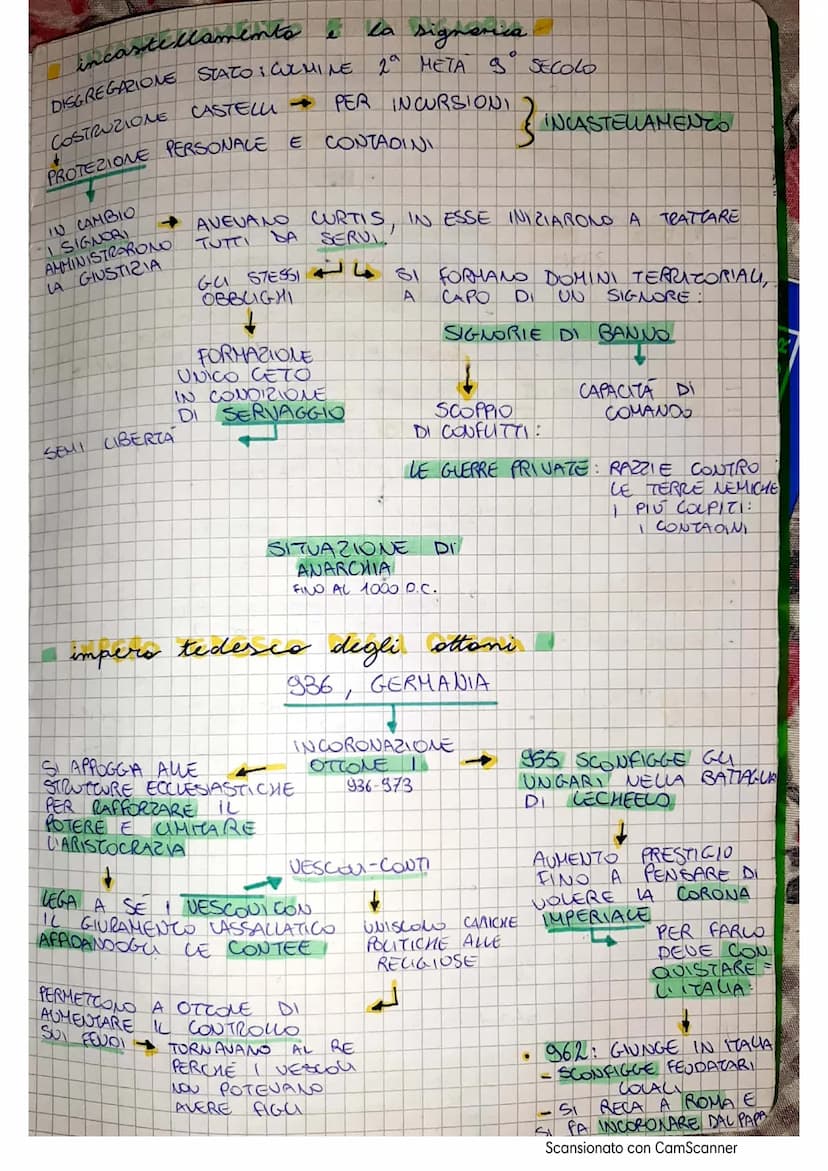 incastellamento e la signoria
DISGREGAZIONE STATO: CULMINE 2ª METÀ 9° SECOLO
COSTRUZIONE CASTELLI → PER INCURSIONI
INCASTELLAMENTO
PROTEZIONE PERSONALE E CONTADINI
IN CAMBIO
I SIGNORI
AMMINISTRARONO
LA GIUSTIZIA
→ AVEVANO CURTIS, IN ESSE INIZIARONO A TRATTARE
TUTTI DA SERVI.
GLI STESSI
OBBLIGHI
SI FORMANO DOMINI TERRITORIALI,
A CAPO DI UN SIGNORE:
SIGNORIE DI BANNO
FORMAZIONE
UNICO CETO
IN CONDIZIONE
DI SERVAGGIO
SEMI LIBERTÀ
CAPACITÀ DI
COMANDO
SCOPPIO
DI CONFLITTI:
LE GUERRE PRIVATE: RAZZIE CONTRO
LE TERRE NEMICHE
I PIÙ COLPITI:
I CONTADINI
SITUAZIONE DI
ANARCHIA
FINO AL 1000 D.C.
impero tedesco degli ottoni
936, GERMANIA
INCORONAZIONE
OTTONE I
936-973
SI APPOGGIA ALLE
STRUTTURE ECCLESIASTICHE
PER RAFFORZARE IL
POTERE E LIMITARE
L'ARISTOCRAZIA
→ 955 SCONFIGGE GLI
UNGARI NELLA BATTAGLIA
DI LECHFELD
LEGA A SÉ I VESCOVI CON
IL GIURAMENTO VASSALLATICO
AFFIDANDOGLI LE CONTEE
VESCOVI-CONTI
UNISCONO CARICHE
POLITICHE ALLE
RELIGIOSE
AUMENTO PRESTIGIO
FINO A PENSARE DI
VOLERE LA CORONA
IMPERIALE
PER FARLO
DEVE CON
QUISTARE =
L'ITALIA:
PERMETTONO A OTTONE DI
AUMENTARE IL CONTROLLO
SUI FEUDI → TORNAVANO AL RE
PERCHÉ I VESCOVI
NON POTEVANO
AVERE FIGLI
• 962: GIUNGE IN ITALIA
- SCONFIGGE FEUDATARI
LOCALI
- SI RECA A ROMA E
SI FA INCORONARE DAL PAPA
Scansionato con CamScanner